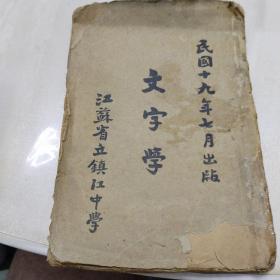 民國十九年七月出版
文字學
江蘇省立鎮江中學